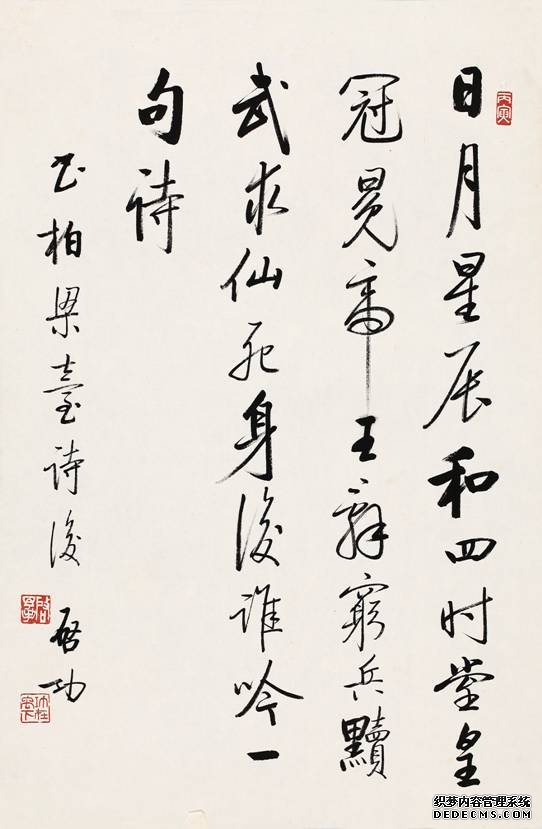 丙寅
日月星辰和四时堂皇
冠冕帝王辞窮兵黷
武求仙死身後誰吟一
句詩
书柏梁臺詩後 啓功
啓功
功在禹下
织梦内容管理系统
DEDECMS.COM